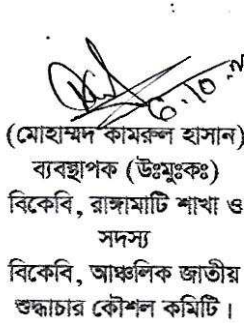 ৬.১০.২
(মোহাম্মদ কামরুল হাসান)
ব্যবস্থাপক (উঃমুঃকঃ)
বিকেবি, রাঙ্গামাটি শাখা ও
সদস্য
বিকেবি, আঞ্চলিক জাতীয়
শুদ্ধাচার কৌশল কমিটি।